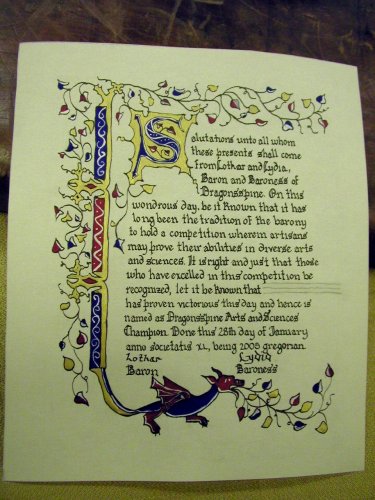 Salutations unto all whom
these presents shall come
from Lothar and Lydia,
Baron and Baroness of
Dragonsspine. On this
wondrous day, be it known that it has
long been the tradition of the barony
to hold a competition wherein artisans
may prove their abilities in diverse arts
and sciences. It is right and just that those
who have excelled in this competition be
recognized, let it be known that
has proven victorious this day and hence is
named as Dragonsspine Arts and Sciences
Champion. Done this 28th day of January
anno societatis XL, being 2005 gregorian.
Lothar Lydia
Baron Baroness